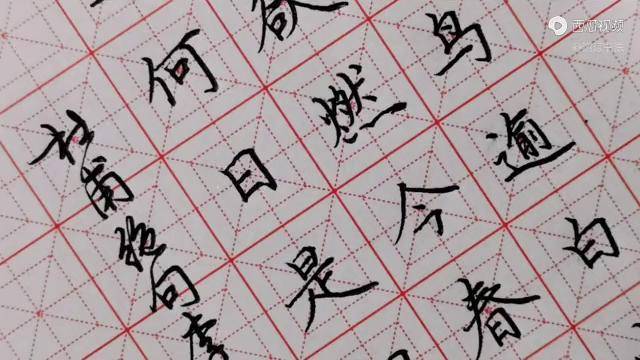 鸟逾白
欲燃今春
何日是
杜甫绝句
西瓜视频